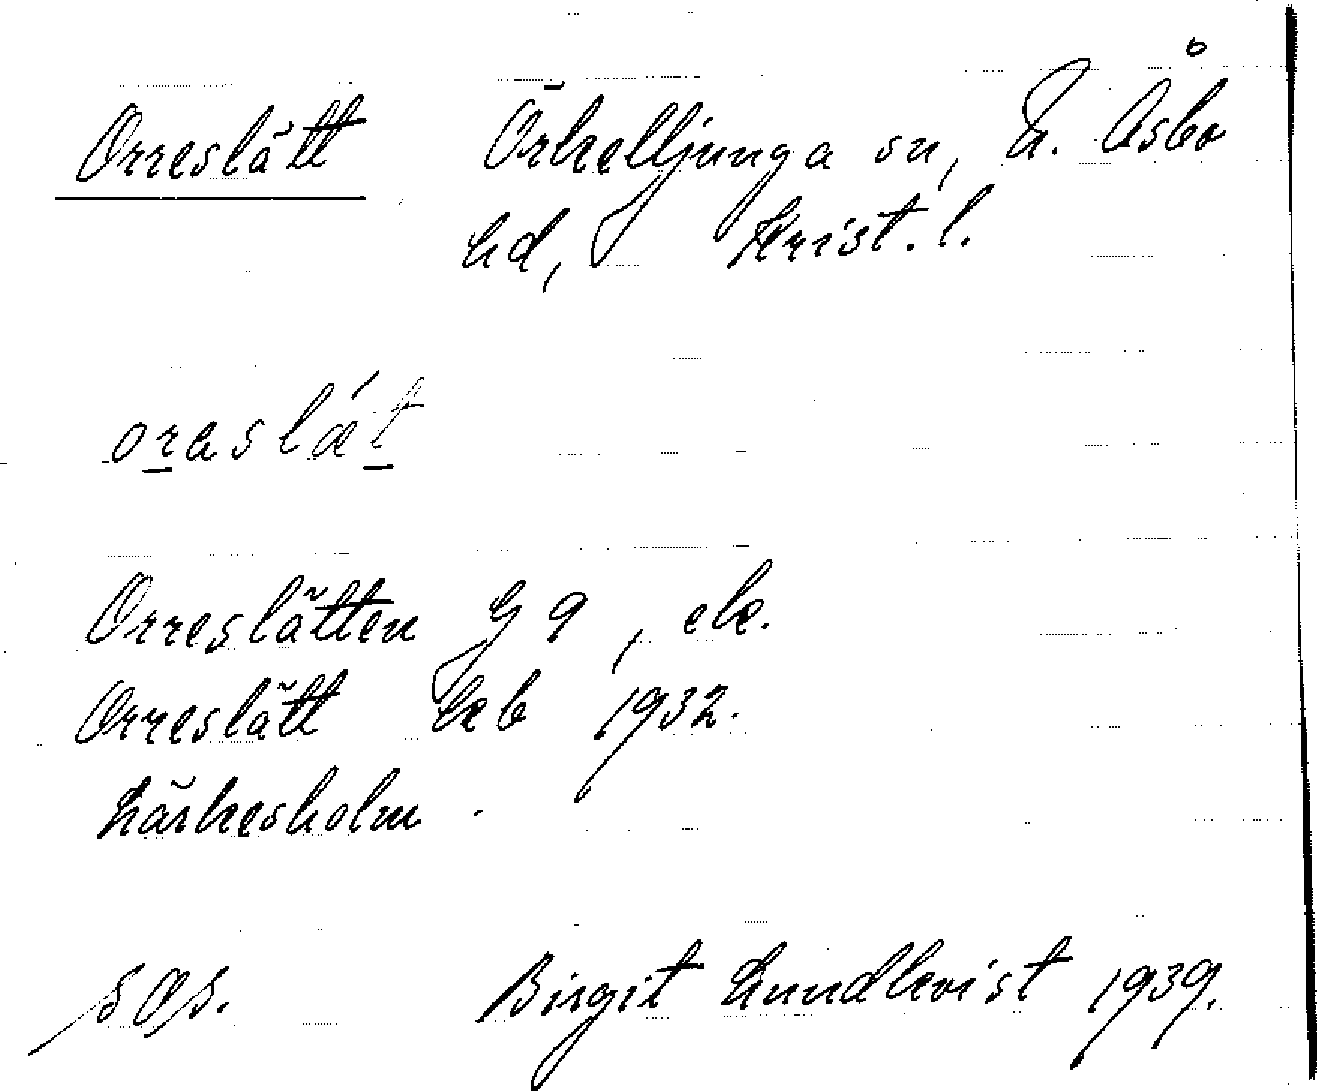 Orreslätt Örkelljunga sn, N. Åsbo
hd, Krist. l.
oraslǽt
Orreslätten G 9, ek.
Orreslätt kb 1932.
Lärkesholm.
s æs.
Birgit Lundkvist 1939.